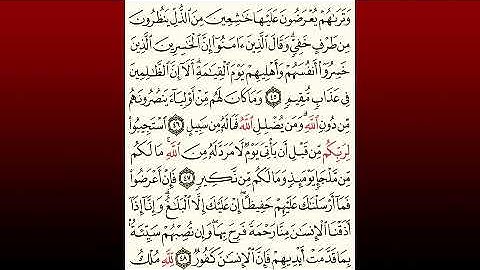 وَتَرَىٰهُمْ يُعْرَضُونَ عَلَيْهَا خَٰشِعِينَ مِنَ ٱلذُّلِّ يَنظُرُونَ
مِن طَرْفٍ خَفِىٍّ ۗ وَقَالَ ٱلَّذِينَ ءَامَنُوٓا۟ إِنَّ ٱلْخَٰسِرِينَ ٱلَّذِينَ
خَسِرُوٓا۟ أَنفُسَهُمْ وَأَهْلِيهِمْ يَوْمَ ٱلْقِيَٰمَةِ ۗ أَلَآ إِنَّ ٱلظَّٰلِمِينَ
فِى عَذَابٍ مُّقِيمٍ ٤٥ وَمَا كَانَ لَهُم مِّنْ أَوْلِيَآءَ يَنصُرُونَهُم
مِّن دُونِ ٱللَّهِ ۗ وَمَن يُضْلِلِ ٱللَّهُ فَمَا لَهُۥ مِن سَبِيلٍ ٤٦ ٱسْتَجِيبُوا۟
لِرَبِّكُم مِّن قَبْلِ أَن يَأْتِىَ يَوْمٌ لَّا مَرَدَّ لَهُۥ مِنَ ٱللَّهِ ۚ مَا لَكُم
مِّن مَّلْجَإٍ يَوْمَئِذٍ وَمَا لَكُم مِّن نَّكِيرٍ ٤٧ فَإِنْ أَعْرَضُوا۟
فَمَآ أَرْسَلْنَٰكَ عَلَيْهِمْ حَفِيظًا ۖ إِنْ عَلَيْكَ إِلَّا ٱلْبَلَٰغُ ۗ وَإِنَّآ إِذَآ
أَذَقْنَا ٱلْإِنسَٰنَ مِنَّا رَحْمَةً فَرِحَ بِهَا ۖ وَإِن تُصِبْهُمْ سَيِّئَةٌۢ
بِمَا قَدَّمَتْ أَيْدِيهِمْ فَإِنَّ ٱلْإِنسَٰنَ كَفُورٌ ٤٨ لِّلَّهِ مُلْكُ